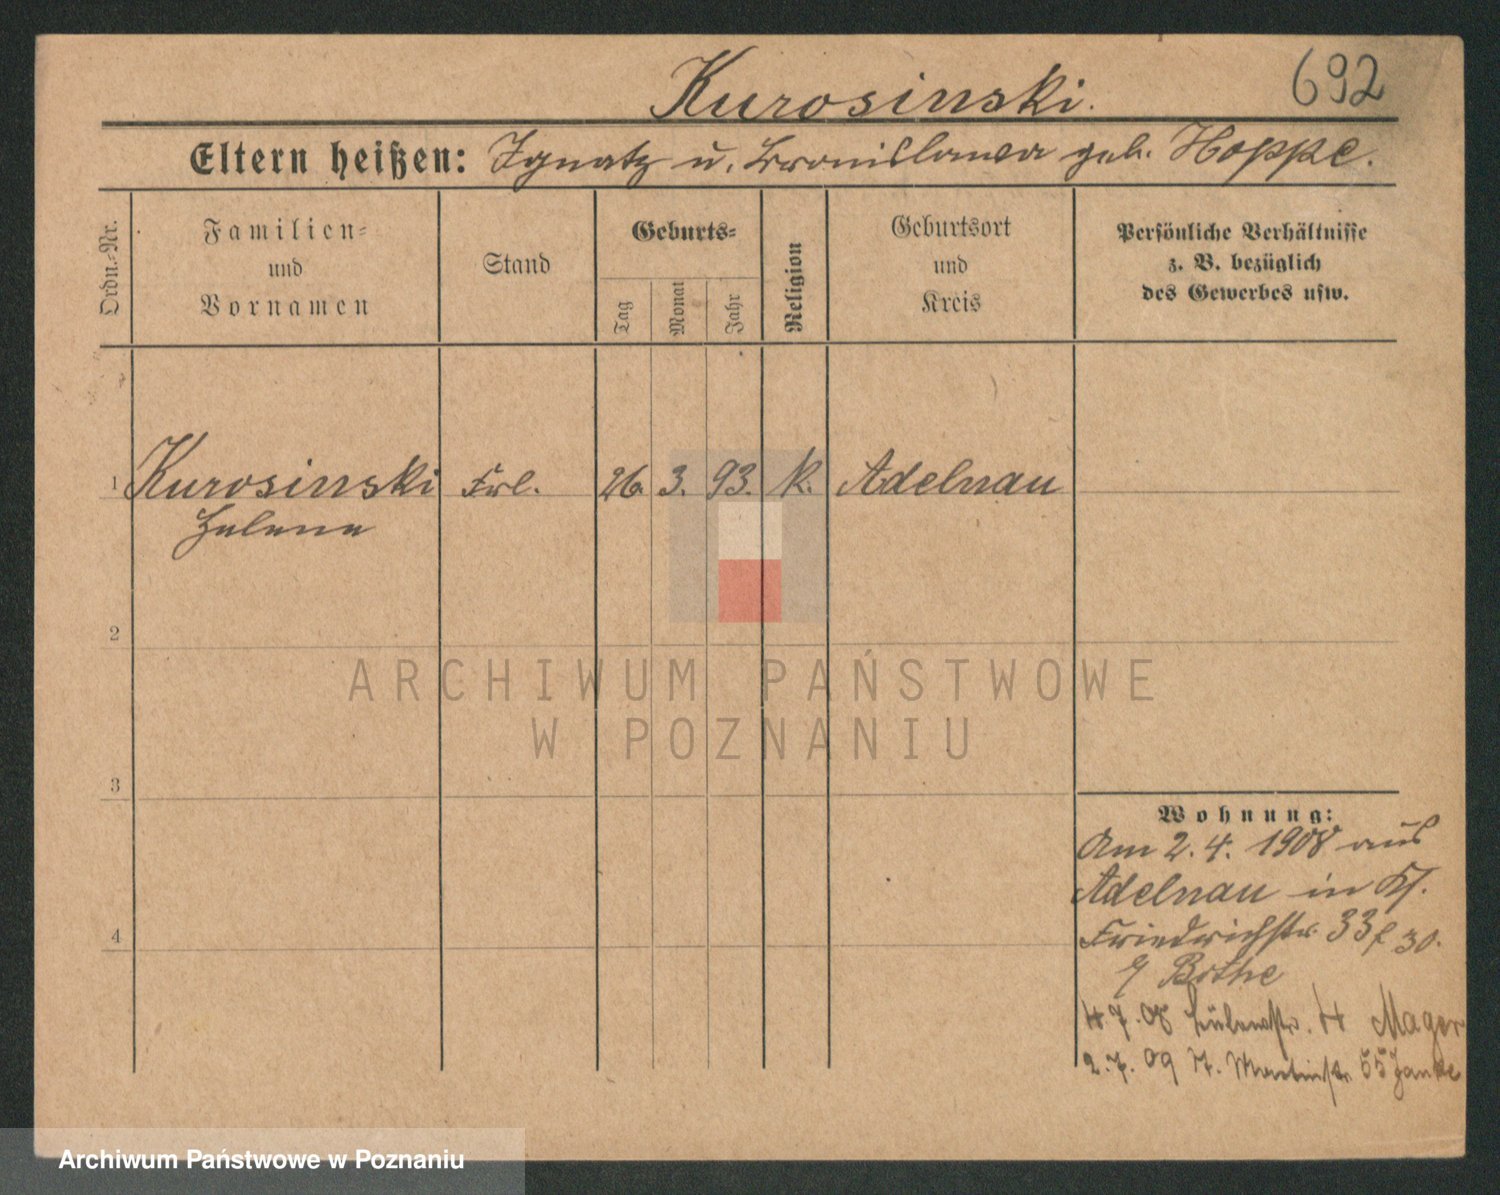 692
Kurosinski.
Eltern heißen: Ignatz u. Bronislawa geb. Hoppe.
Ordn.-Nr.
Familien-
und
Vornamen
Stand
Geburts-
Tag
Monat
Jahr
Religion
Geburtsort
und
Kreis
Persönliche Verhältnisse
z. B. bezüglich
des Gewerbes usw.
1 Kurosinski Frl. 26. 3. 93. k. Adelnau
Helene
2
3
4
Wohnung:
Am 2. 4. 1908 aus
Adelnau in
Friedrichstr. 33 30.
Bothe
4.7.08 4 Mager
2.7.09 St. Martinstr. 55 Janke
ARCHIWUM PAŃSTWOWE
W POZNANIU
Archiwum Państwowe w Poznaniu